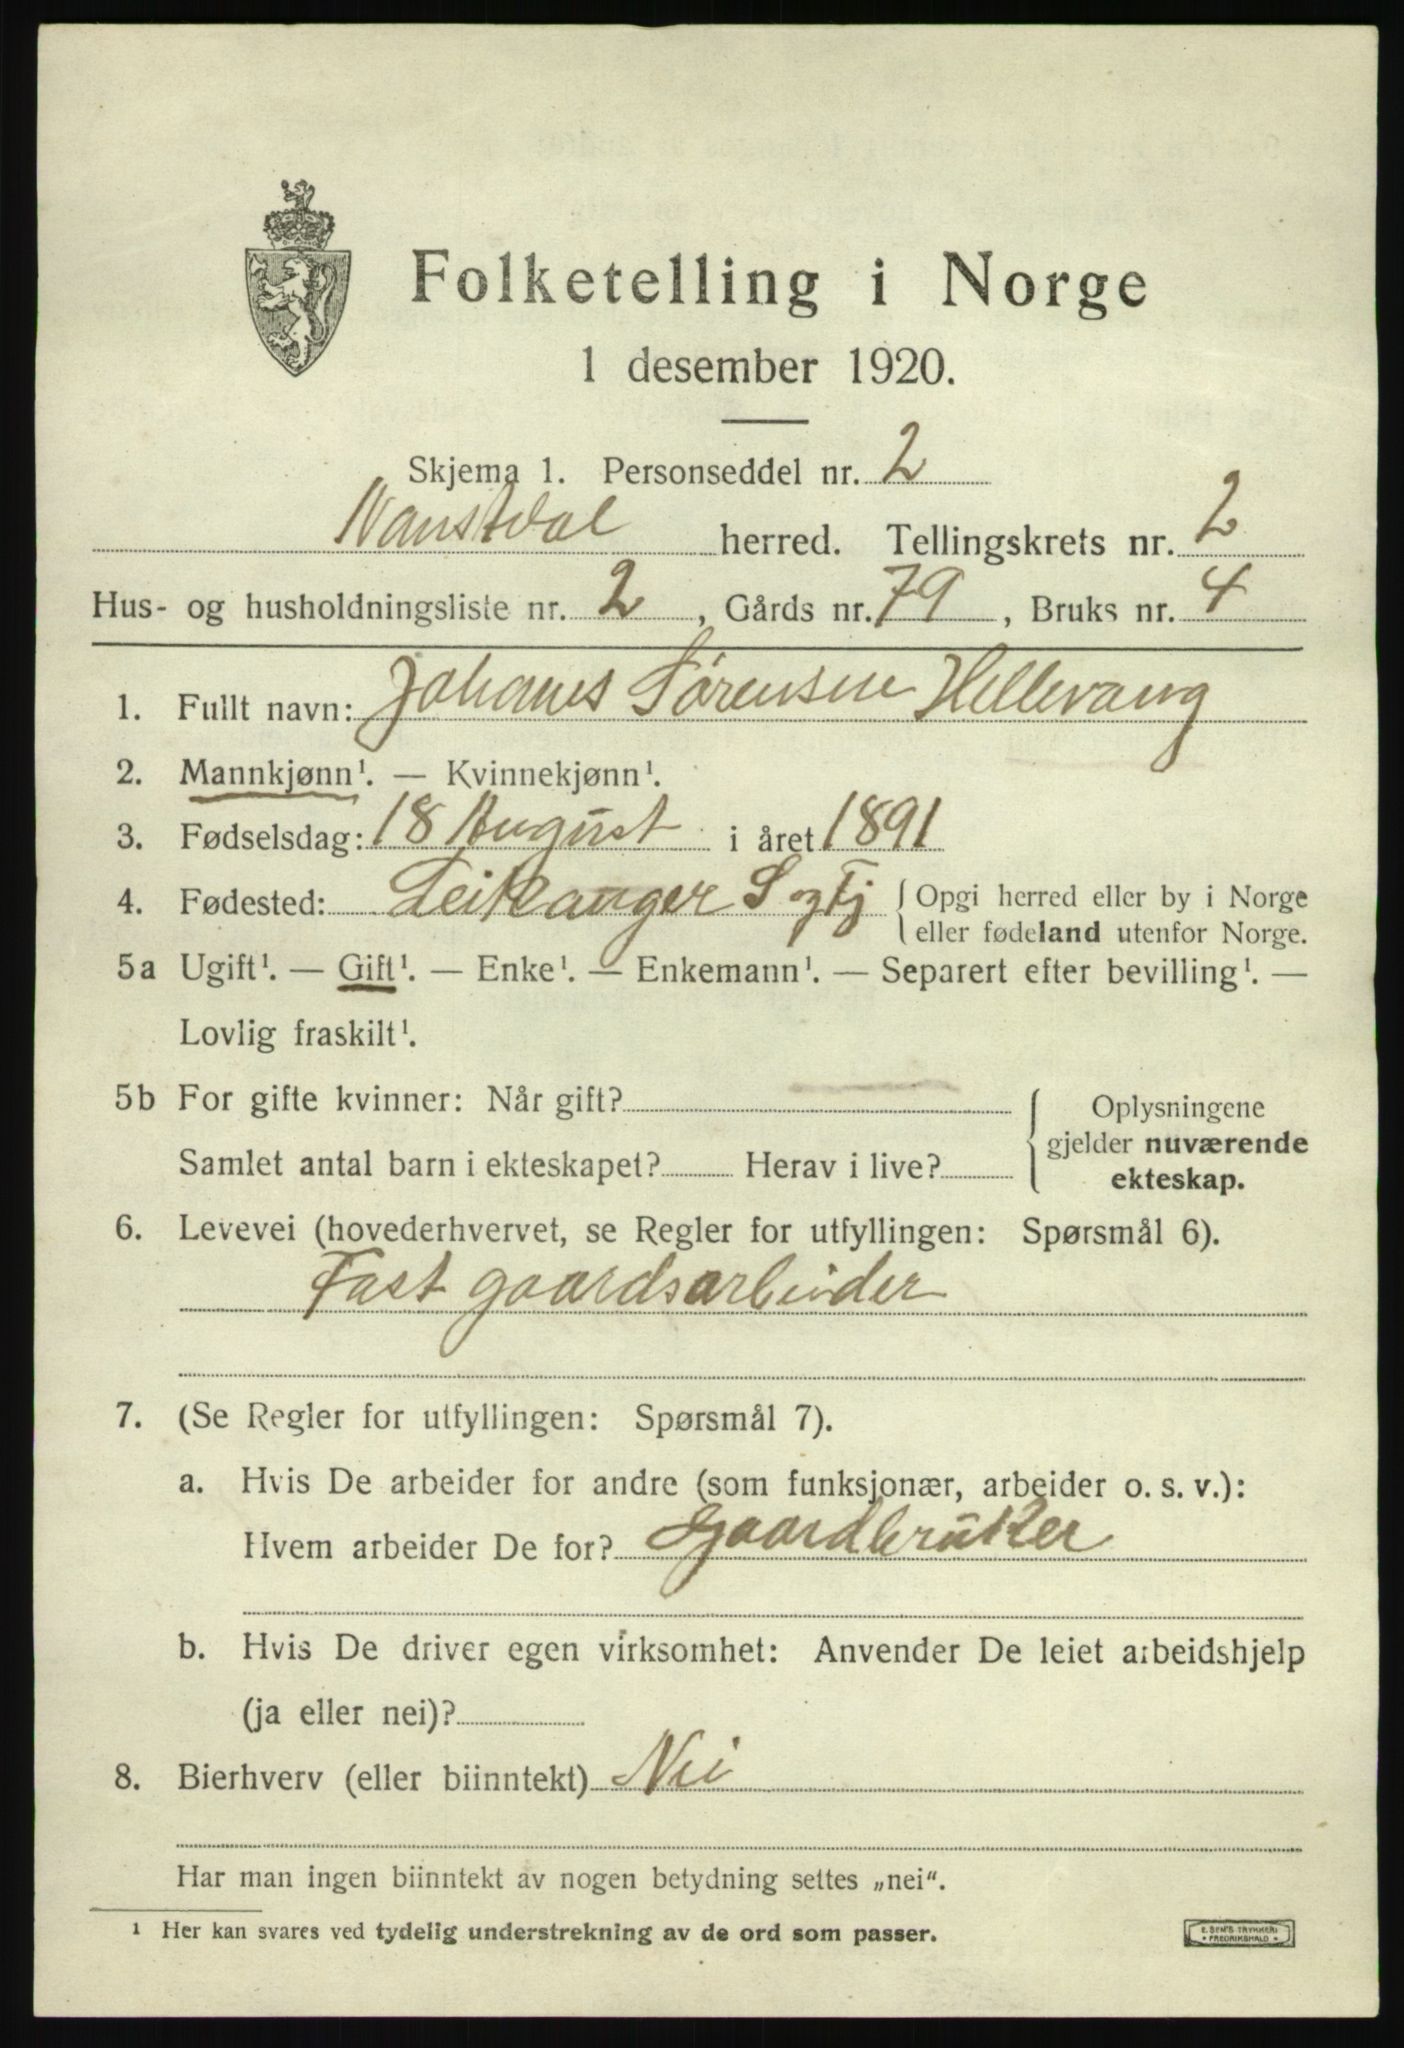 Folketelling i Norge
1 desember 1920.
Skjema 1. Personseddel nr. 2
herred. Tellingskrets nr. 2
Hus- og husholdningsliste nr. 2, Gårds nr. 79, Bruks nr. 4
1. Fullt navn: Johanes Sørensen Hellevang
2. Mannkjønn¹. — Kvinnekjønn¹.
3. Fødselsdag: 18 August i året 1891
4. Fødested: Leikanger S og Fj { Opgi herred eller by i Norge
eller fødeland utenfor Norge.
5a Ugift¹. — Gift¹. — Enke¹. — Enkemann¹. — Separert efter bevilling¹. —
Lovlig fraskilt¹.
5b For gifte kvinner: Når gift?
Samlet antal barn i ekteskapet? Herav i live?
{ Oplysningene
gjelder nuværende
ekteskap.
6. Levevei (hovederhvervet, se Regler for utfyllingen: Spørsmål 6).
Fast gaardsarbeider
7. (Se Regler for utfyllingen: Spørsmål 7).
a. Hvis De arbeider for andre (som funksjonær, arbeider o. s. v.):
Hvem arbeider De for? Gaardbruker
b. Hvis De driver egen virksomhet: Anvender De leiet arbeidshjelp
(ja eller nei)?
8. Bierhverv (eller biinntekt) Nei
Har man ingen biinntekt av nogen betydning settes „nei“.
¹ Her kan svares ved tydelig understrekning av de ord som passer.
E. SEM'S TRYKKERI
• FREDRIKSHALD •